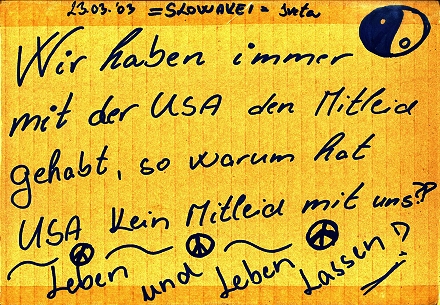 23.03.'03 =SLOWAKEI= Iveta
Wir haben immer
mit der USA den Mitleid
gehabt, so warum hat
USA kein Mitleid mit uns??
Leben und Leben Lassen!